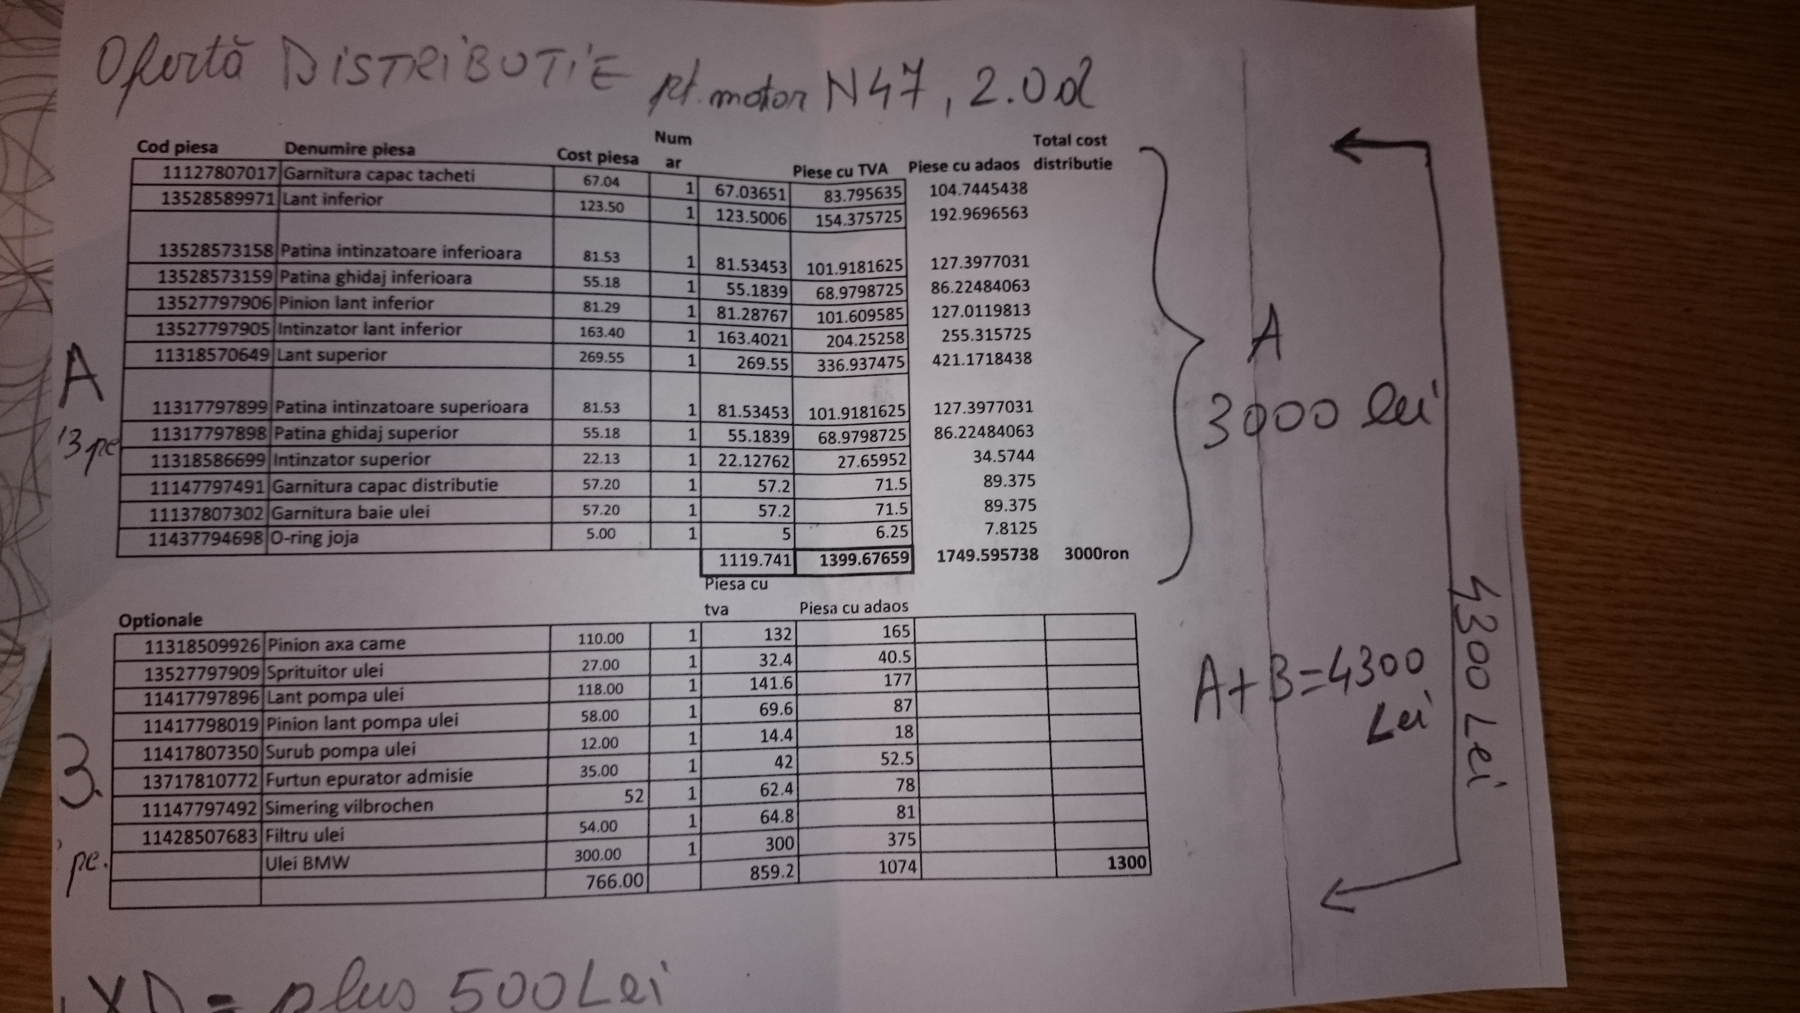 Ofertă DISTRIBUTIE pt. motor N47, 2.0d
Cod piesa Denumire piesa Cost piesa Num ar Piese cu TVA Piese cu adaos Total cost distributie
11127807017 Garnitura capac tacheti 67.04 1 67.03651 83.795635 104.7445438
13528589971 Lant inferior 123.50 1 123.5006 154.375725 192.9696563
13528573158 Patina intinzatoare inferioara 81.53 1 81.53453 101.9181625 127.3977031
13528573159 Patina ghidaj inferioara 55.18 1 55.1839 68.9798725 86.22484063
13527797906 Pinion lant inferior 81.29 1 81.28767 101.609585 127.0119813
13527797905 Intinzator lant inferior 163.40 1 163.4021 204.25258 255.315725
11318570649 Lant superior 269.55 1 269.55 336.937475 421.1718438
11317797899 Patina intinzatoare superioara 81.53 1 81.53453 101.9181625 127.3977031
11317797898 Patina ghidaj superior 55.18 1 55.1839 68.9798725 86.22484063
11318586699 Intinzator superior 22.13 1 22.12762 27.65952 34.5744
11147797491 Garnitura capac distributie 57.20 1 57.2 71.5 89.375
11137807302 Garnitura baie ulei 57.20 1 57.2 71.5 89.375
11437794698 O-ring joja 5.00 1 5 6.25 7.8125
1119.741 1399.67659 1749.595738 3000ron
A
A
3000 lei
Optionale Piesa cu tva Piesa cu adaos
11318509926 Pinion axa came 110.00 1 132 165
13527797909 Sprituitor ulei 27.00 1 32.4 40.5
11417797896 Lant pompa ulei 118.00 1 141.6 177
11417798019 Pinion lant pompa ulei 58.00 1 69.6 87
11417807350 Surub pompa ulei 12.00 1 14.4 18
13717810772 Furtun epurator admisie 35.00 1 42 52.5
11147797492 Simering vilbrochen 52 1 62.4 78
11428507683 Filtru ulei 54.00 1 64.8 81
Ulei BMW 300.00 1 300 375
766.00 859.2 1074 1300
A+B=4300
Lei
4300 Lei
XD = plus 500 Lei